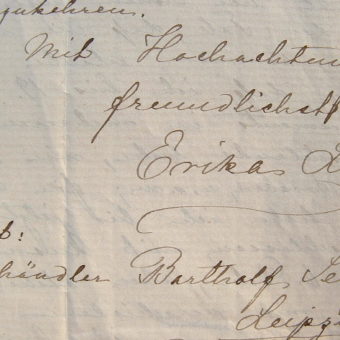 zukehren.
Mit Hochachtun
freundlichst
Erika
b:
händler Bartholf Se
Leipz